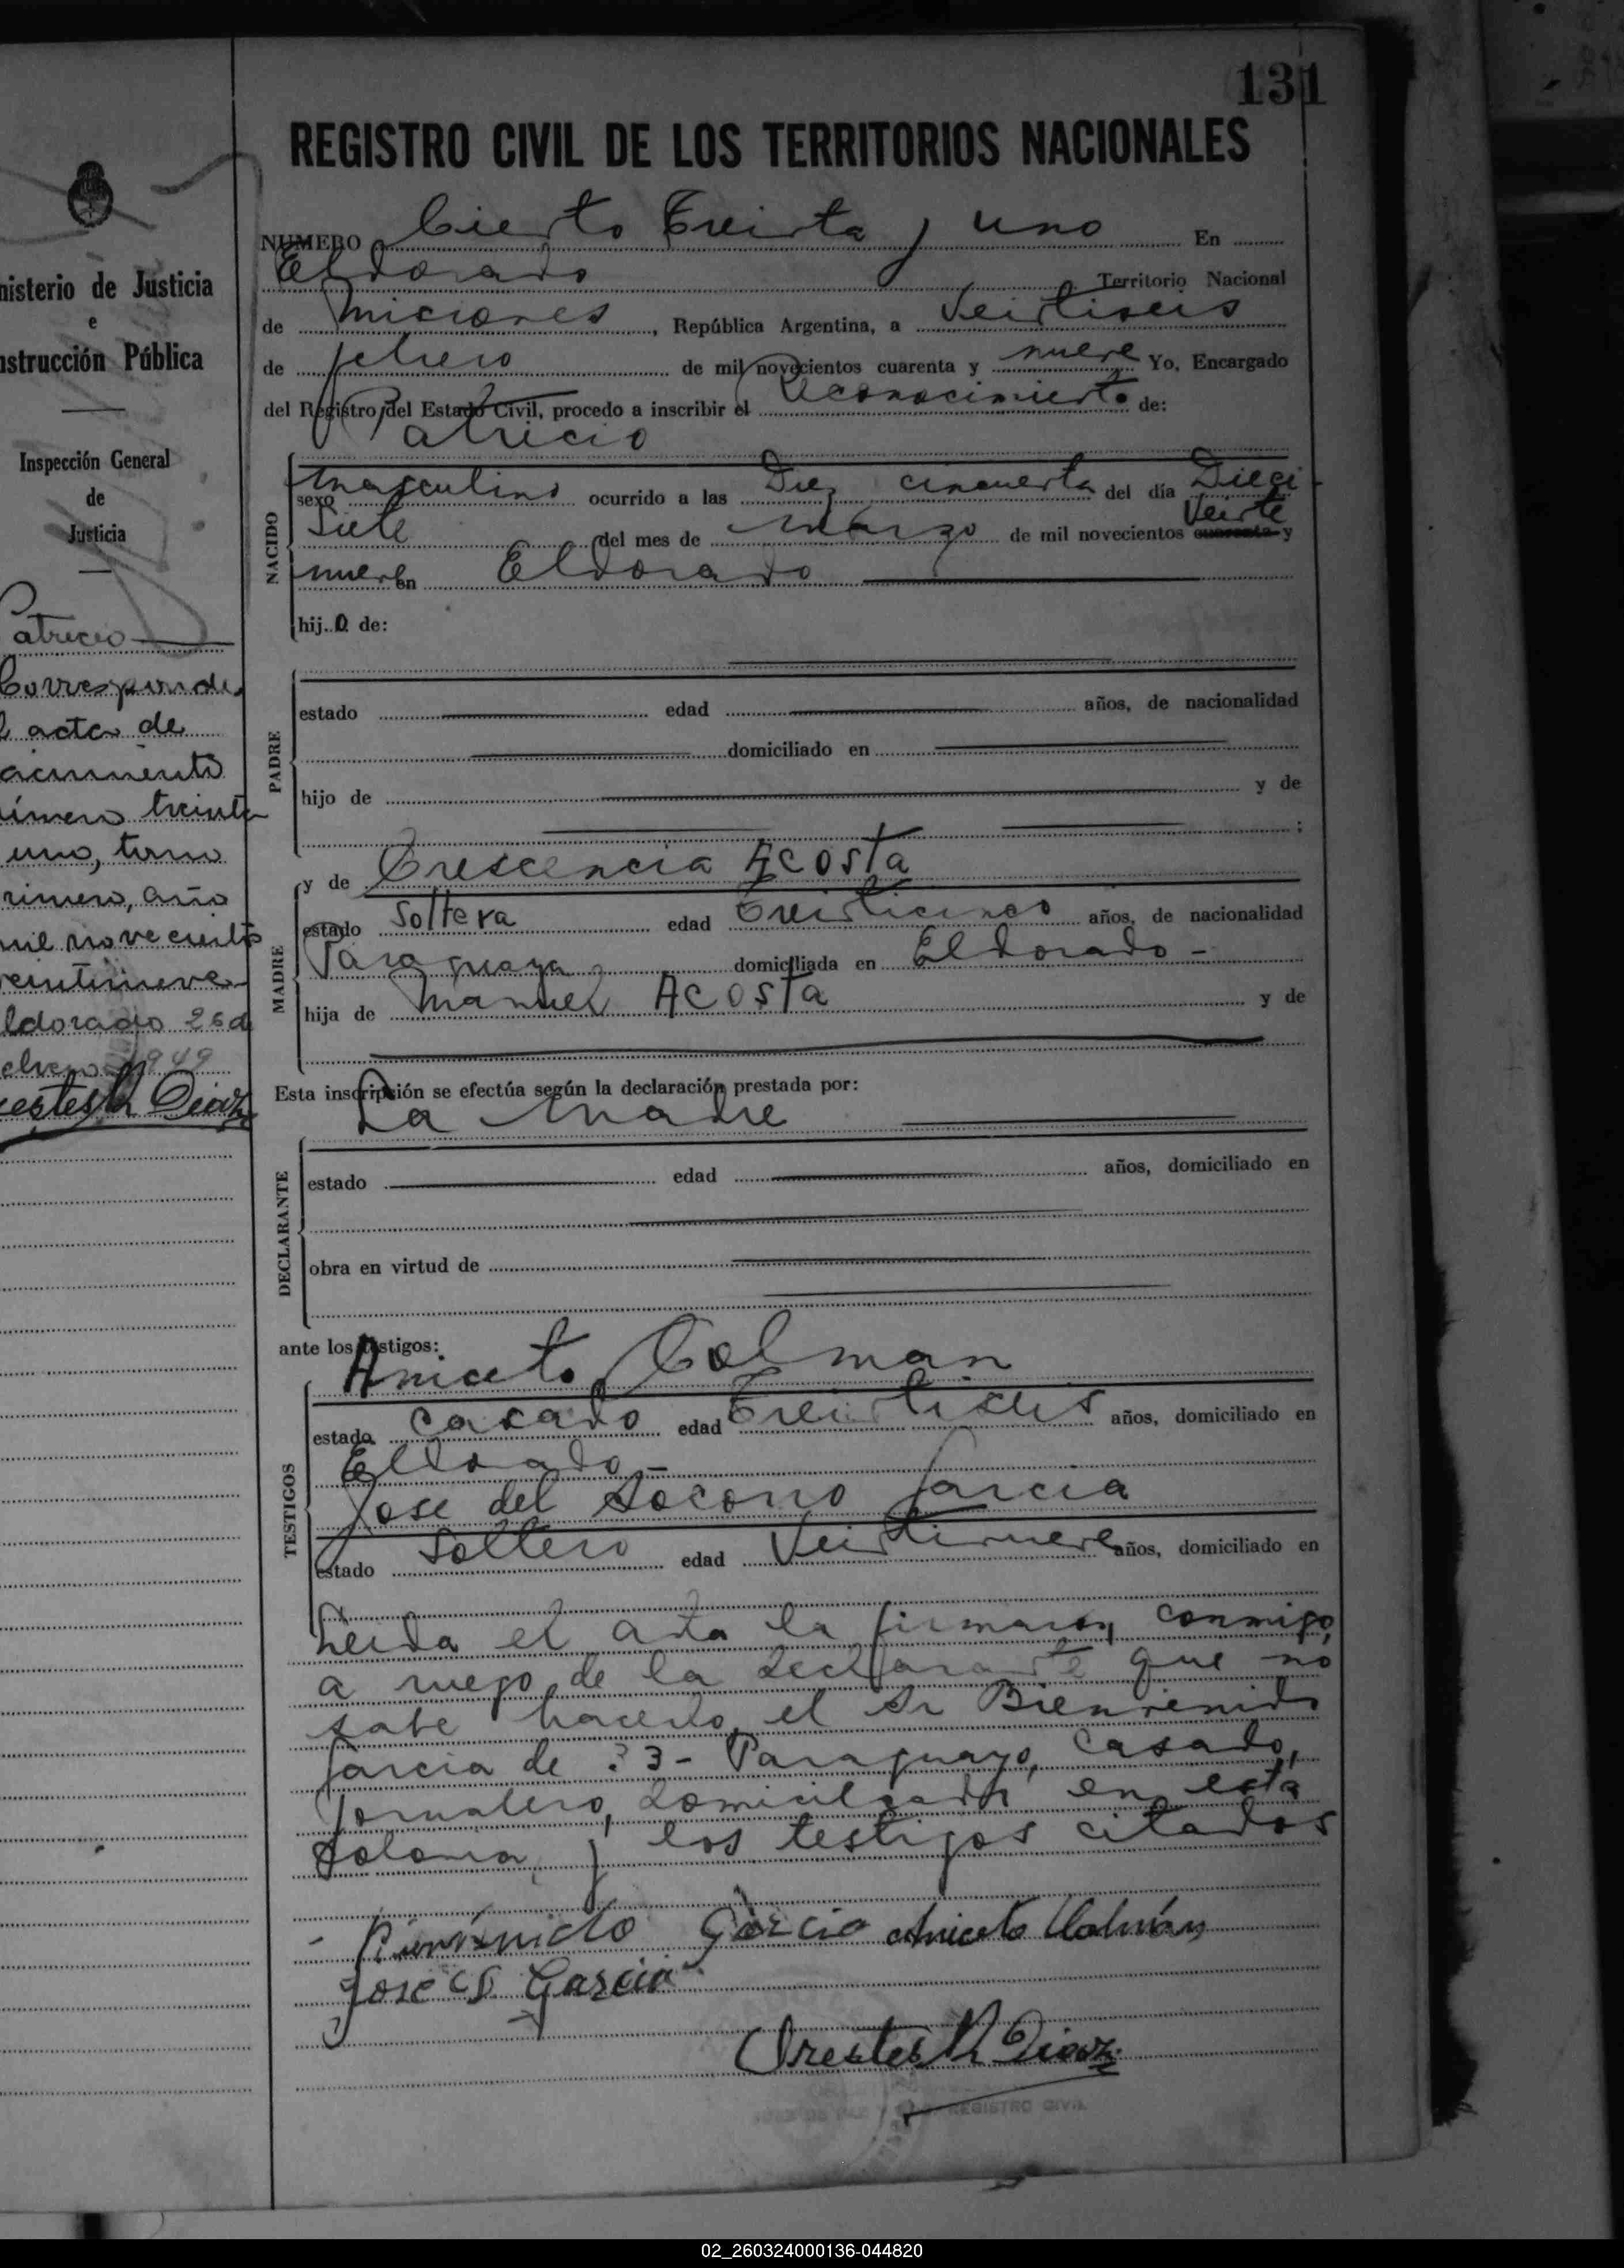 131
REGISTRO CIVIL DE LOS TERRITORIOS NACIONALES
NUMERO Ciento Treinta y uno En
Eldorado Territorio Nacional
de Miciones, República Argentina, a Veintiseis
de febrero de mil novecientos cuarenta y nueve Yo, Encargado
del Registro del Estado Civil, procedo a inscribir el Reconocimiento de:
Patricio
NACIDO
sexo masculino ocurrido a las Diez cincuenta del día Dieci-
siete del mes de marzo de mil novecientos cuarenta Veinte y
nueve en Eldorado
hijo de:
PADRE
estado edad años, de nacionalidad
domiciliado en
hijo de y de
;
y de Crescencia Acosta
MADRE
estado Soltera edad Treinticinco años, de nacionalidad
Paraguaya domiciliada en Eldorado -
hija de Manuel Acosta y de
Esta inscripción se efectúa según la declaración prestada por:
La Madre
DECLARANTE
estado edad años, domiciliado en
obra en virtud de
ante los testigos:
Aniceto Colman
TESTIGOS
estado casado edad Treintiseis años, domiciliado en
Eldorado -
Jose del Socorro Garcia
estado Soltero edad Veintinueve años, domiciliado en
Leida el acta la firmaron conmigo,
a ruego de la declarante que no
sabe hacerlo, el Sr Bienvenido
Garcia de 3 - Paraguayo, casado,
jornalero, domiciliado en esta
Colonia y los testigos citados
Bienvenido Garcia Aniceto Colmán
Jose Garcia
Orestes Diaz
REGISTRO CIVIL
nisterio de Justicia
e
nstrucción Pública
Inspección General
de
Justicia
Patricio
Corresponde
l acta de
acimiento
úmero treinta
uno, tomo
rimero, año
mil novecientos
veintinueve
ldorado 26 d
ebrero 1949
restes Diaz
02_260324000136-044820